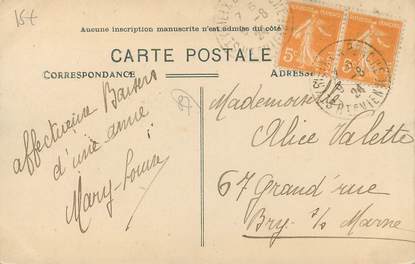 15t
Aucune inscription manuscrite n'est admise du côté
CARTE POSTALE
CORRESPONDANCE
ADRESSE
affectueux Baisers
d'une amie
Mary-Louise
Mademoiselle
Alice Valette
67 Grand'rue
Bry s/s Marne
5c
5c
24